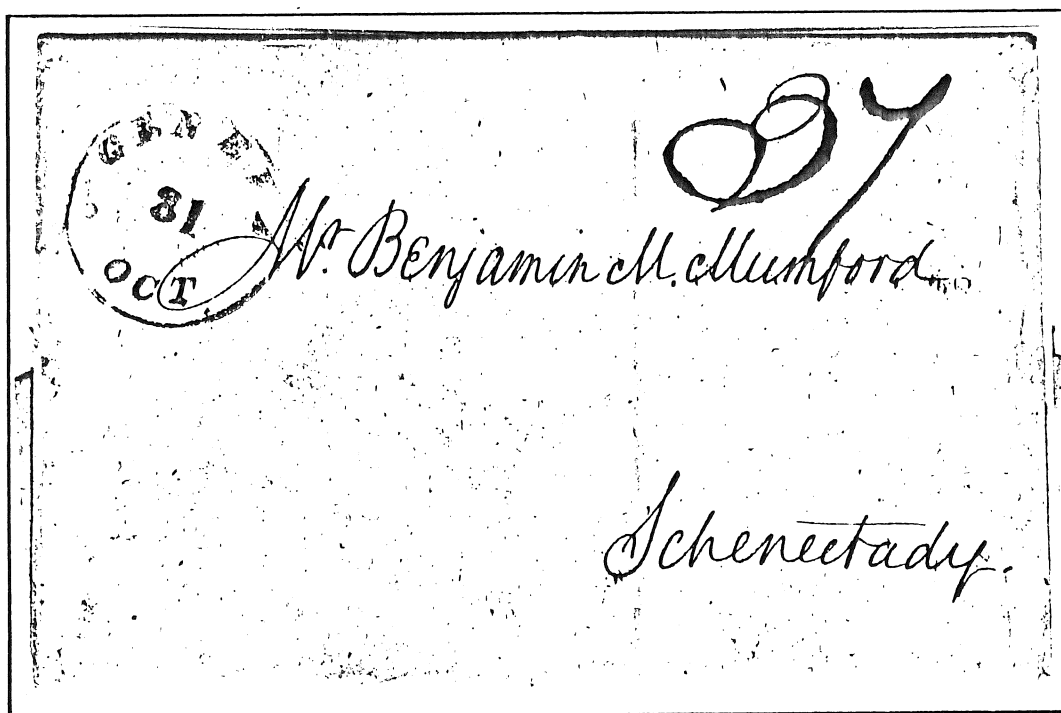 GENEVA
31
OCT
37
Mr. Benjamin M. Mumford
Schenectady.